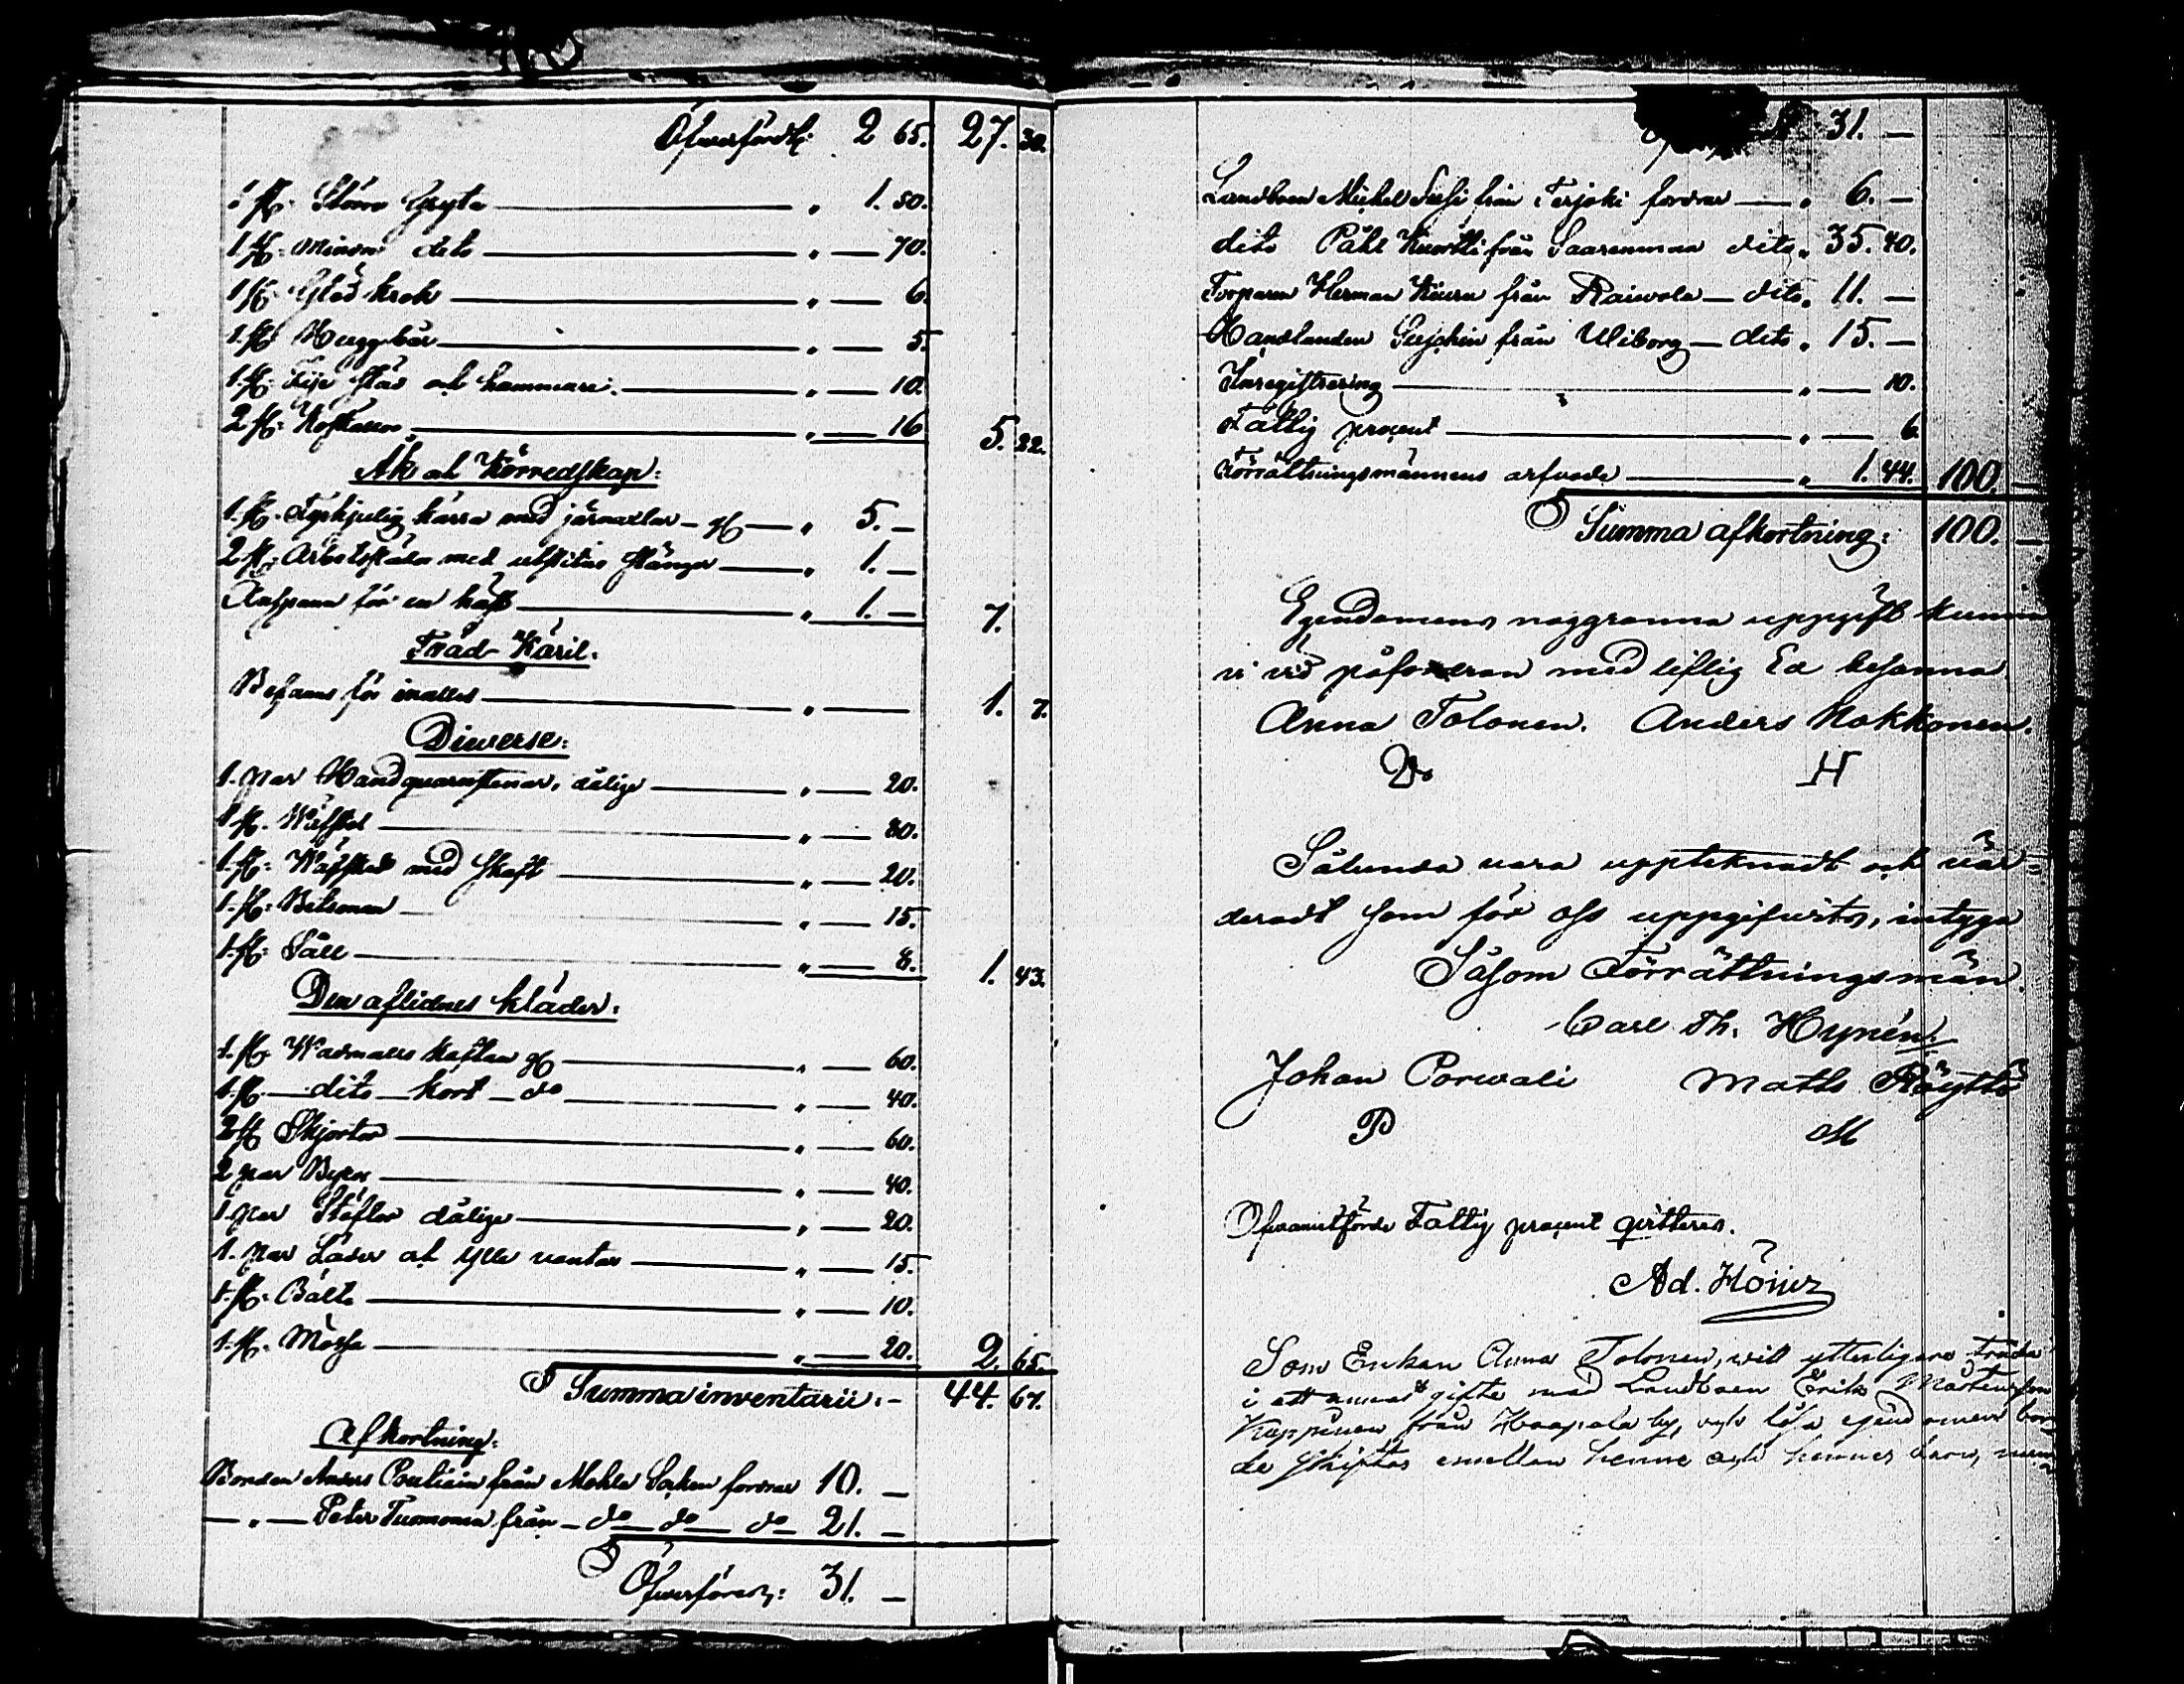 Öfverfördt: 2 65. 27. 30.
1 st. Större Gryta — „ 1. 50.
1 st. Mindre dito — „ — 70.
1 st. Glödkrok — „ — 6.
1 st. Huggebär — „ — 5.
1 st. städ och hammare. — „ — 10.
2 st. — „ — 16 5. 22.
Åk och Körredskap:
1. st. Tvåhjulig kärra med järnaxlar — „ 5. —
2 st. Arbetsslädar med stänger — „ 1. —
Anspann för en häst — „ 1. — 7.
Träd Käril.
Befanns för inalles — „ — 1. 7.
Diverse:
1. par Handquarnstenar, dålige — „ — 20.
1 st. Wäfstol — „ — 80.
1. st. Wäfsked med skaft — „ — 20.
1. st. Betsman — „ — 15.
1. st. Såll — „ — 8. 1. 43.
Den aflidnes kläder:
1. st. Wadmals kaftan — „ — 60.
1. st. — dito — kort — do — „ — 40.
2 st Skjortor — „ — 60.
2 par Byxor — „ — 40.
1. par Stöflor dålige — „ — 20.
1. par Läder och ylle vantar — „ — 15.
1. st. Bälte — „ — 10.
1. st. Mössa — „ — 20. 2. 65.
S Summa inventarii: - 44. 67.
Afkortning:
Bonden Anders från Mohla Socken fordrar 10. —
— „ — Peter Tuomonen från — do — do — do — 21. —
Öfverföres: 31. —
31. —
Landboen Michel Susi från Terjoki fordrar — „ 6. —
dito Påhl Kurtti från Saarenmaa dito „ 35. 40.
Torparen Herman Kiuru från Raiwola — dito „ 11. —
Handlanden från Wiborg — dito „ 15. —
Inregistrering — „ — 10.
Fattig procent — „ — 6
Förrättningsmännens arfvode — „ 1. 44. 100. —
S Summa afkortning: 100. —
Egendomens noggranna uppgift kunna
vi vid påfordran med liflig Ed besanna
Anna Tolonen. Anders Hokkonen.
H
Sålunda vara upptecknadt och vär-
deradt som för oss uppgifvits, intyga
Såsom Förrättningsmän.
Carl Th. Hynén.
Johan Porwali Matts Räyttö
P M
Ofvanintförde Fattig procent qvitteras.
Ad.
Som Enkan Anna Tolonen, vill ytterligare träda
i ett annat gifte med Landboen Erik Mårtensson
Kappinen från Haapala by, och lösa egendomen bör-
de skiftas emellan henne och hennes barn,